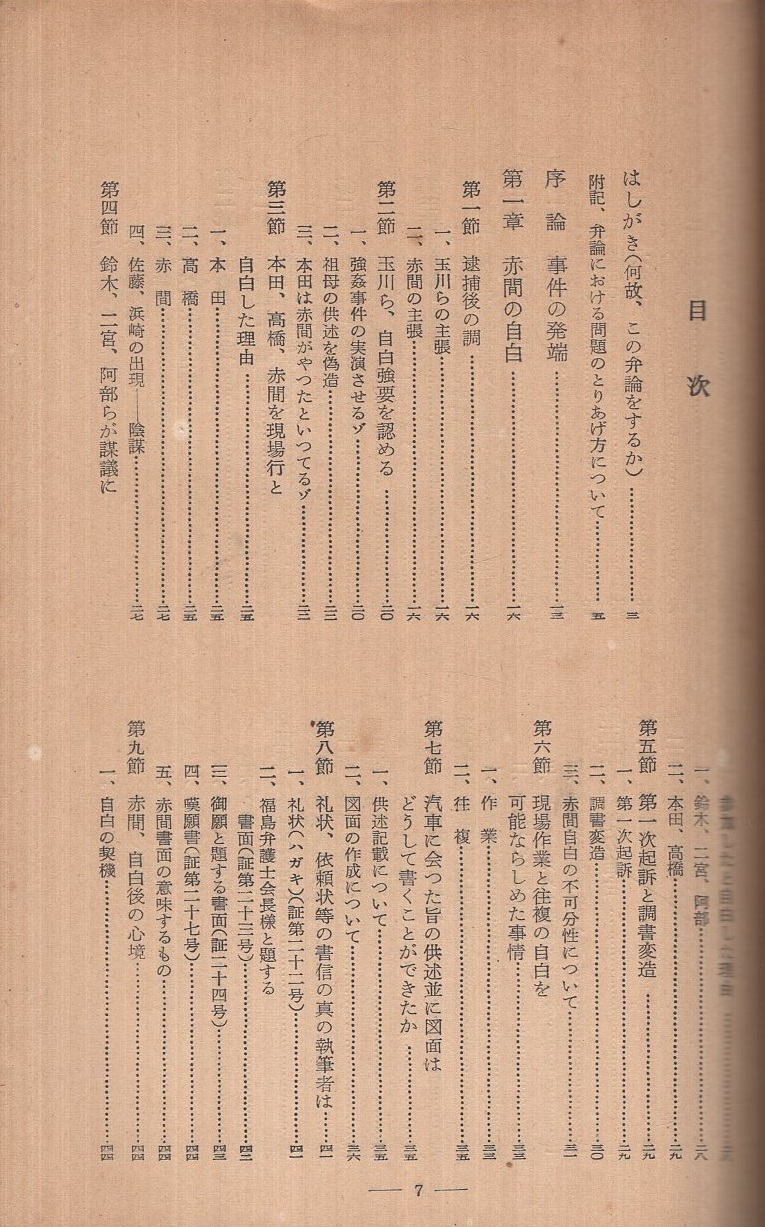 目次
はしがき(何故、この弁論をするか)……三
附記、弁論における問題のとりあげ方について……五
序論 事件の発端……一三
第一章 赤間の自白……一六
第一節 逮捕後の調……一六
一、玉川らの主張……一六
二、赤間の主張……一六
第二節 玉川ら、自白強要を認める……二〇
一、強姦事件の実演させるゾ……二〇
二、祖母の供述を偽造……二二
三、本田は赤間がやつたといつてるゾ……二二
第三節 本田、高橋、赤間を現場行と
自白した理由……二五
一、本田……二五
二、高橋……二五
三、赤間……二七
四、佐藤、浜崎の出現――陰謀……二七
第四節 鈴木、二宮、阿部らが謀議に
参加したと自白した理由……二八
一、鈴木、二宮、阿部……二八
二、本田、高橋……二九
第五節 第一次起訴と調書変造……二九
一、第一次起訴……二九
二、調書変造……三〇
三、赤間自白の不可分性について……三一
第六節 現場作業と往複の自白を
可能ならしめた事情……三三
一、作業……三三
二、往複……三五
第七節 汽車に会つた旨の供述並に図面は
どうして書くことができたか……三五
一、供述記載について……三五
二、図面の作成について……三六
第八節 礼状、依頼状等の書信の真の執筆者は……四一
一、礼状(ハガキ)(証第二十二号)……四一
二、福島弁護士会長様と題する
書面(証第二十三号)……四二
三、御願と題する書面(証二十四号)……四三
四、嘆願書(証第二十七号)……四四
五、赤間書面の意味するもの……四四
第九節 赤間、自白後の心境……四四
一、自白の契機……四四
― 7 ―